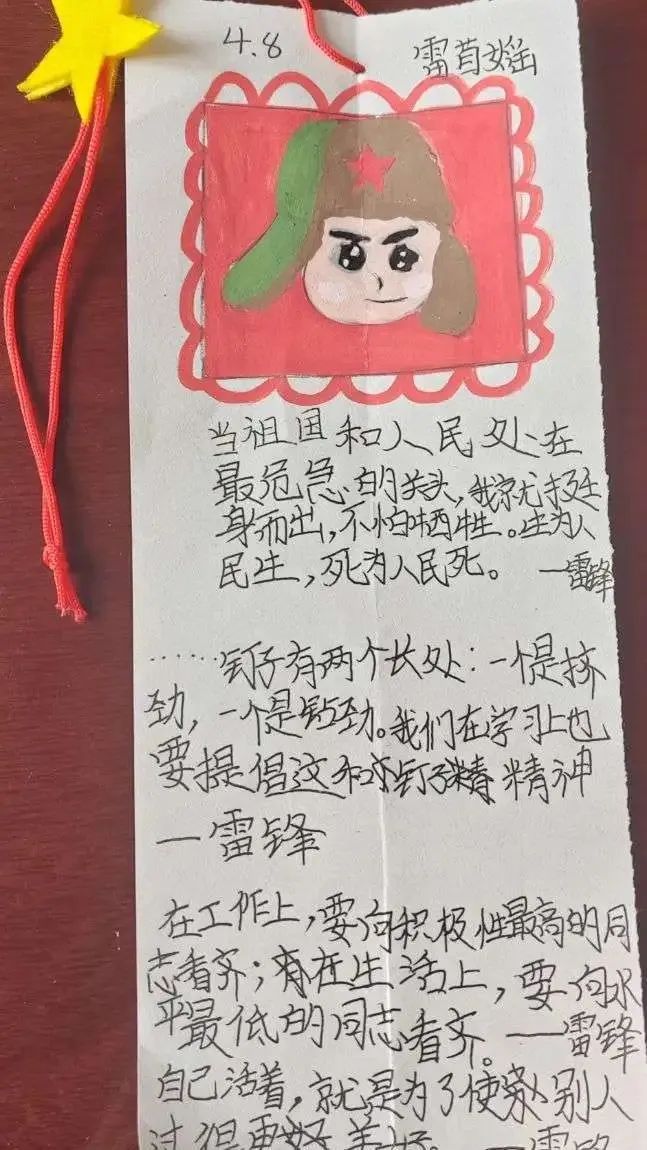 4.8 雷苜瑶
当祖国和人民处在
最危急的关头，我就挺
身而出，不怕牺牲。生为人
民生，死为人民死。 —雷锋
……钉子有两个长处：一个是挤
劲，一个是钻劲。我们在学习上也
要提倡这种钉子精神
—雷锋
在工作上，要向积极性最高的同
志看齐；在生活上，要向水
平最低的同志看齐。—雷锋
自己活着，就是为了使别人
过得更好 美好。—雷锋